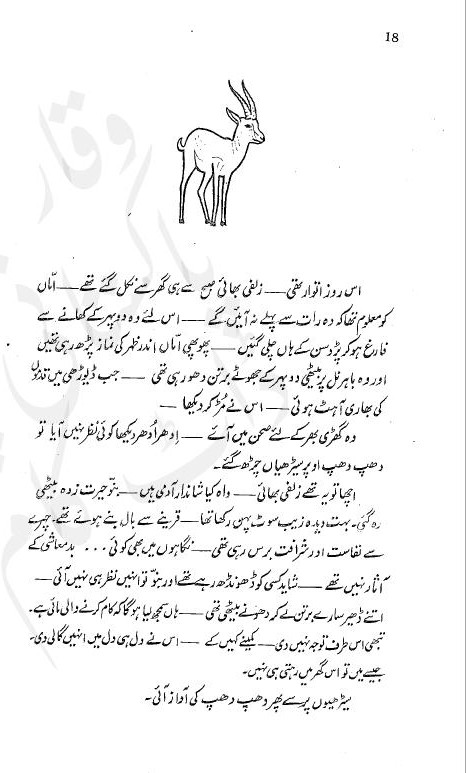 18
اس روز اتوار تھی — زلفی بھائی صبح سے ہی گھر سے نکل گئے تھے — اماں
کو معلوم تھا کہ وہ رات سے پہلے نہ آئیں گے — اس لئے وہ دوپہر کے کھانے سے
فارغ ہو کر پڑوسن کے ہاں چلی گئیں — پھوپھی اماں اندر ظہر کی نماز پڑھ رہی تھیں
اور وہ باہر نل پر بیٹھی دوپہر کے جھوٹے برتن دھو رہی تھی — جب ڈیوڑھی میں قدموں
کی بھاری آہٹ ہوئی — اس نے مڑ کر دیکھا —
وہ گھڑی بھر کے لئے صحن میں آئے — اِدھر اُدھر دیکھا کوئی نظر نہیں آیا تو
دھپ دھپ اوپر سیڑھیاں چڑھ گئے۔
اچھا تو یہ تھے زلفی بھائی — واہ کیا شاندار آدمی ہیں — بنّو حیرت زدہ بیٹھی
رہ گئی۔ بہت دیدہ زیب سوٹ پہن رکھا تھا — قرینے سے بال بنے ہوئے تھے۔ چہرے
سے نفاست اور شرافت برس رہی تھی — نگاہوں میں بھی کوئی ... بدمعاشی کے
آثار نہیں تھے — شاید کسی کو ڈھونڈ رہے تھے اور بنّو تو انہیں نظر ہی نہیں آئی —
اتنے ڈھیر سارے برتن لے کر دھونے بیٹھی تھی — ہاں سمجھ لیا ہو گا کہ کام کرنے والی مائی ہے۔
تبھی اس طرف توجہ نہیں دی — کمینے کہیں کے — اس نے دل ہی دل میں انہیں گالی دی۔
جیسے میں تو اس گھر میں رہتی ہی نہیں۔
سیڑھیوں پر سے پھر دھپ دھپ کی آواز آئی۔